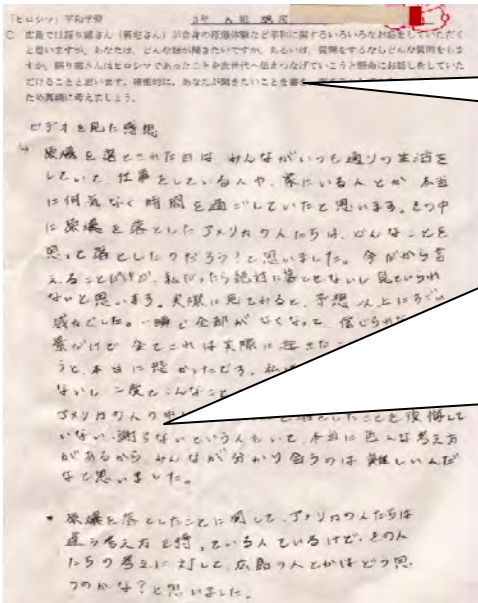 「ヒロシマ」平和学習 3年 A組
○ 広島では語り部さん(        さん)が自身の原爆体験など平和に関するいろいろなお話をしていただく
と思いますが、あなたは、どんな話が聞きたいですか。あるいは、質問をするならどんな質問をしま
すか。語り部さんはヒロシマであったことを次世代へ伝えつなげていこうと懸命にお話しをしていた
だけることと思います。積極的に、あなたが聞きたいことを
ため真剣に考えましょう。
ビデオを見た感想
原爆を落とされた日は、みんながいつも通りの生活を
していて、仕事をしている人や、家にいる人とか 本当
に何気なく時間を過ごしていたと思います。その中
に原爆を落としたアメリカの人たちは、どんなことを
思って落としたのだろう?と思いました。今だから言
えることだけど、私だったら絶対に落とせないし見ていられ
ないと思います。実際に見てみると、予想以上にすごい
感じでした。一瞬で全部がなくなって、信じられ
景だけど 全てこれは実際に起きた
うと、本当に怖かったです。私
ないし 二度とこんなこと
アメリカの人の中 落としたことを後悔して
いない、謝らないという人もいて、本当に色んな考え方
があるから、みんなが分かり合うのは難しいんだ
なと思いました。
* 原爆を落としたことに関して、アメリカの人たちは
違う考え方を持っている人もいるけど、その人
たちの考えに対して、広島の人とかはどう思
うのかな?と思いました。